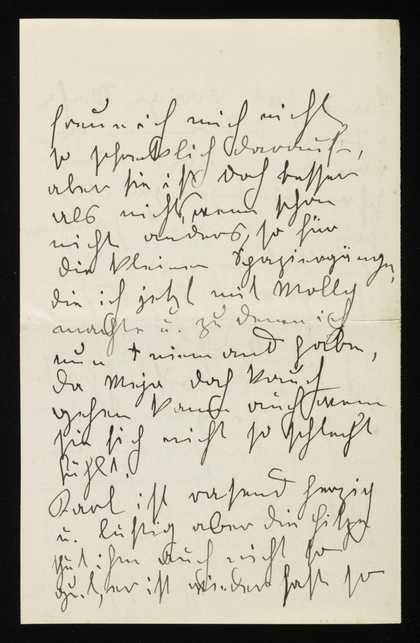 freue ich mich nicht
so schrecklich darauf,
aber sie ist doch besser
als nichts, wenn schon
nicht anders, so für
die kleinen Spaziergänge,
die ich jetzt mit Molly
machte u. zu denen ich
nun niemand habe,
da Meja doch kaum
gehen kann auch wenn
sie sich nicht so schlecht
fühlt.
Karl ist rasend herzig
u. lustig aber die Hitze
tut ihm auch nicht so
gut, er ist wieder fast so